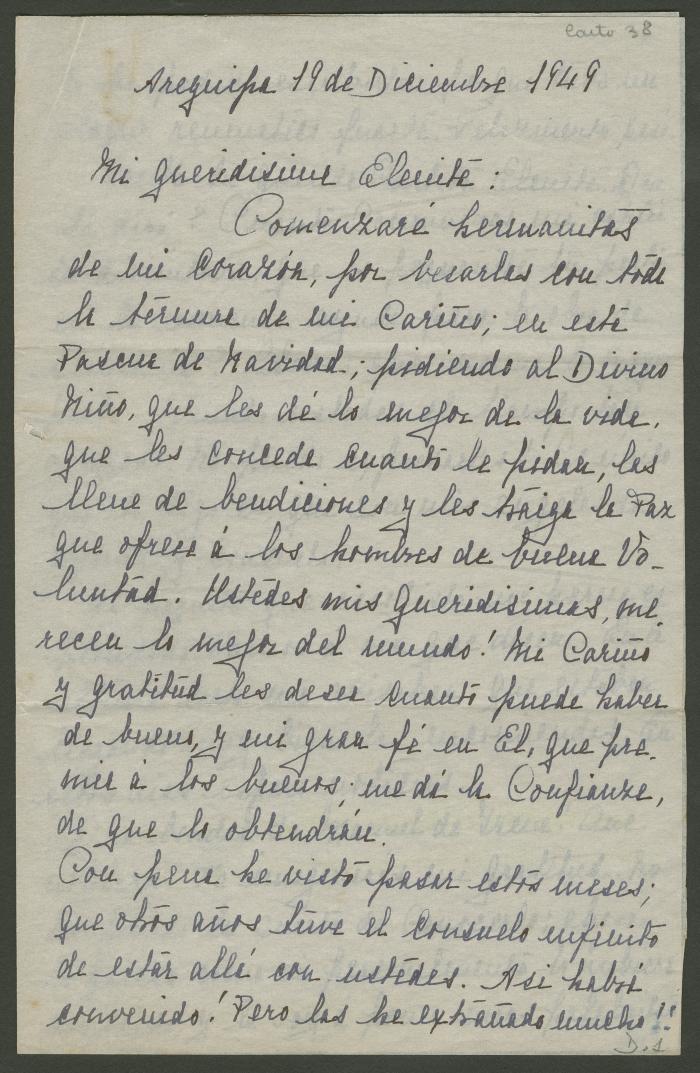 Carta 38
Arequipa 19 de Diciembre 1949
Mi queridisima Elenita :
Comenzaré hermanitas
de mi corazón, por besarlas con toda
la ternura de mi Cariño; en esta
Pascua de Navidad; pidiendo al Divino
Niño, que les dé lo mejor de la vida,
que les conceda cuanto le pidan, las
llene de bendiciones y les traiga la Paz
que ofrece á los hombres de buena Vo-
luntad. Ustedes mis queridisimas, me-
recen lo mejor del mundo! Mi Cariño
y gratitud les desea cuanto puede haber
de bueno, y mi gran fé en El, que pre-
mia á los buenos, me dá la Confianza,
de que lo obtendrán.
Con pena he visto pasar estos meses;
que otros años tuve el consuelo infinito
de estar allá con ustedes. Asi habrá
convenido! Pero las he extrañado mucho!!